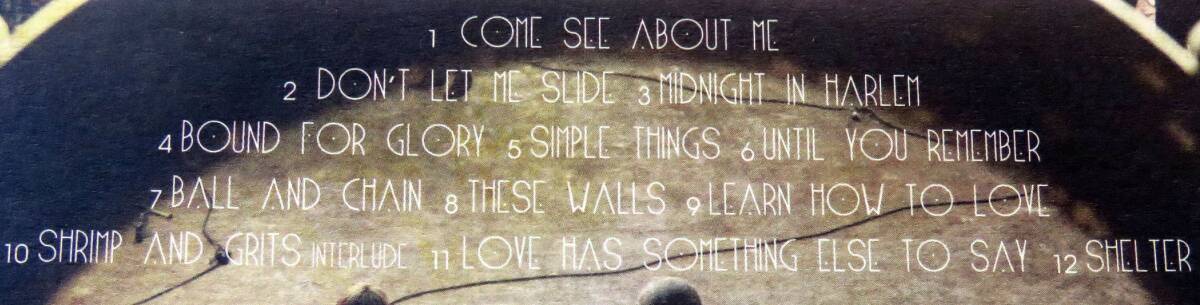 1 COME SEE ABOUT ME
2 DON'T LET ME SLIDE 3 MIDNIGHT IN HARLEM
4 BOUND FOR GLORY 5 SIMPLE THINGS 6 UNTIL YOU REMEMBER
7 BALL AND CHAIN 8 THESE WALLS 9 LEARN HOW TO LOVE
10 SHRIMP AND GRITS INTERLUDE 11 LOVE HAS SOMETHING ELSE TO SAY 12 SHELTER